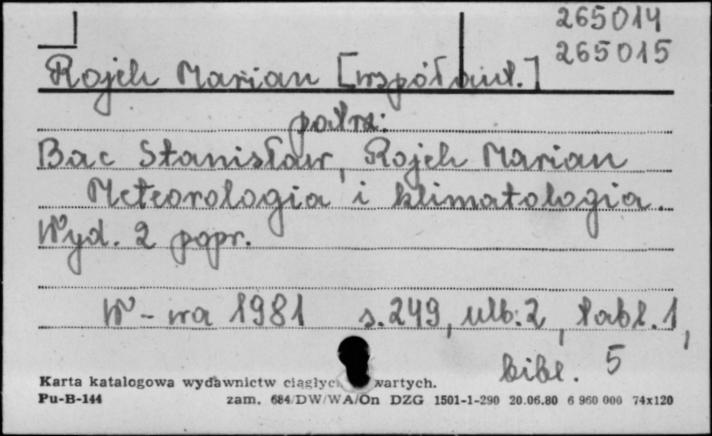 265014
265015
Rojek Marian [współaut.]
patrz:
Bac Stanisław, Rojek Marian
Meteorologia i klimatologia.
Wyd. 2 popr.
W-wa 1981 s. 249, ulb. 2, tabl. 1,
bibl. 5
Karta katalogowa wydawnictw wartych.
Pu-B-144 zam. 684/DW/WA/On DZG 1501-1-290 20.06.80 6 960 000 74x120